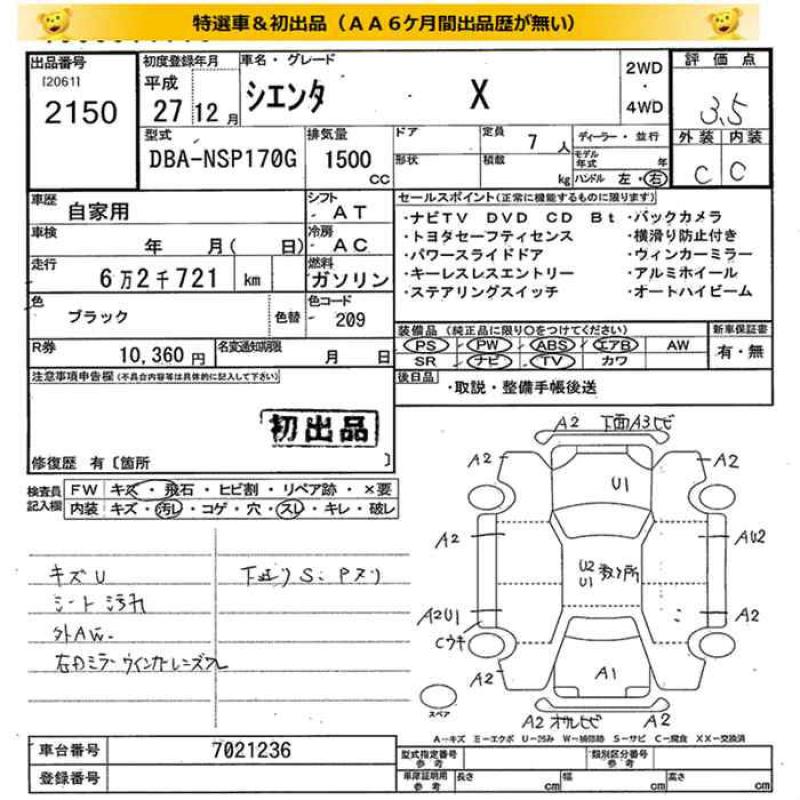 特選車＆初出品（ＡＡ６ケ月間出品歴が無い）
出品番号
[2061]
2150
初度登録年月
平成
27 12 月
車名・グレード
シエンタ X
2WD
・
4WD
評価点
3.5
外装 内装
C C
型式
DBA-NSP170G
排気量
1500 cc
ドア
形状
定員 7 人
積載 kg
ディーラー・並行
モデル年式 年
ハンドル 左・右
車歴 自家用
シフト AT
車検 年 月( 日)
冷房 AC
走行 6万2千721 km
燃料 ガソリン
色 ブラック 色替
色コード 209
R券 10,360 円
名変通知期限 月 日
セールスポイント(正常に機能するものに限ります)
・ナビTV DVD CD Bt ・バックカメラ
・トヨタセーフティセンス ・横滑り防止付き
・パワースライドドア ・ウィンカーミラー
・キーレスレスエントリー ・アルミホイール
・ステアリングスイッチ ・オートハイビーム
装備品 (純正品に限り○をつけてください)
新車保証書
PS PW ABS エアB AW
有・無
SR ナビ TV カワ
後日品
・取説・整備手帳後送
注意事項申告欄(不具合内容等は具体的に記入して下さい)
初出品
修復歴 有〔箇所 〕
検査員記入欄
FW キズ・飛石・ヒビ割・リペア跡・×要
内装 キズ・汚れ・コゲ・穴・スレ・キレ・破レ
キズU
シート汚れ
外AW
右ドミラーウインカーレンズ
下廻りS
A2 下面A3ヒビ
A2 A2
U1
A2 AU2
U2
U1
A2U1 A2
Cウキ
A2
A1
スペア
A2 A2
A－キズ E－エクボ U－凹み W－補修跡 S－サビ C－腐食 XX－交換済
車台番号 7021236
登録番号
型式指定番号 参考
類別区分番号 参考
車庫証明用 参考 長さ cm 幅 cm 高さ cm